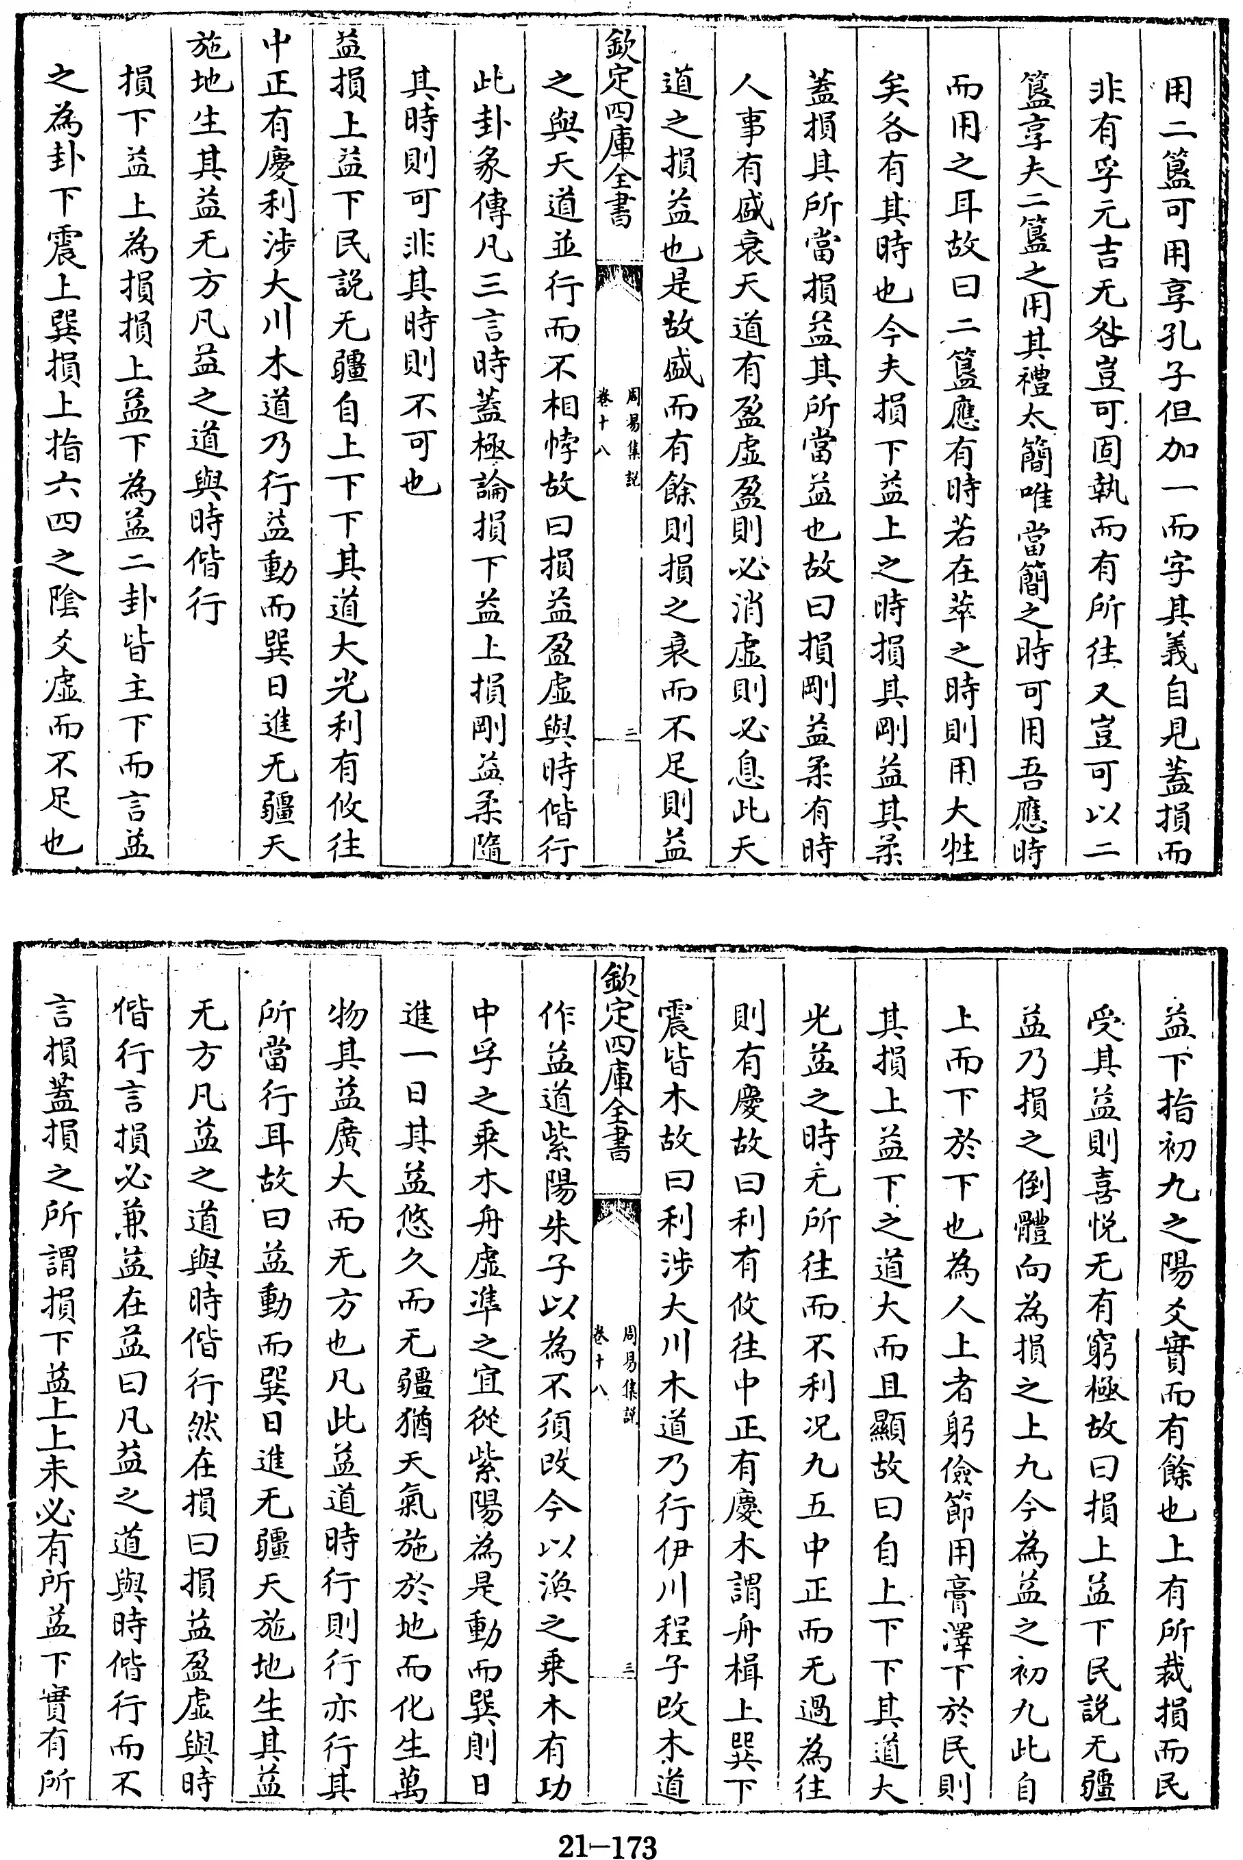 用二簋可用享孔子但加一而字其義自見蓋損而
非有孚元吉无咎豈可固執而有所往又豈可以二
簋享夫二簋之用其禮太簡唯當簡之時可用吾應時
而用之耳故曰二簋應有時若在萃之時則用大牲
矣各有其時也今夫損下益上之時損其剛益其柔
蓋損其所當損益其所當益也故曰損剛益柔有時
人事有盛衰天道有盈虛盈則必消虛則必息此天
道之損益也是故盛而有餘則損之衰而不足則益
欽定四庫全書
周易集說
卷十八
二
之與天道並行而不相悖故曰損益盈虛與時偕行
此卦彖傳凡三言時蓋極論損下益上損剛益柔隨
其時則可非其時則不可也
益損上益下民說无疆自上下下其道大光利有攸往
中正有慶利涉大川木道乃行益動而巽日進无疆天
施地生其益无方凡益之道與時偕行
損下益上為損損上益下為益二卦皆主下而言益
之為卦下震上巽損上指六四之陰爻虛而不足也
益下指初九之陽爻實而有餘也上有所裁損而民
受其益則喜悅无有窮極故曰損上益下民說无疆
益乃損之倒體向為損之上九今為益之初九此自
上而下於下也為人上者躬儉節用膏澤下於民則
其損上益下之道大而且顯故曰自上下下其道大
光益之時无所往而不利况九五中正而无過為往
則有慶故曰利有攸往中正有慶木謂舟楫上巽下
震皆木故曰利涉大川木道乃行伊川程子改木道
欽定四庫全書
周易集說
卷十八
三
作益道紫陽朱子以為不須改今以渙之乘木有功
中孚之乘木舟虛準之宜從紫陽為是動而巽則日
進一日其益悠久而无疆猶天氣施於地而化生萬
物其益廣大而无方也凡此益道時行則行亦行其
所當行耳故曰益動而巽日進无疆天施地生其益
无方凡益之道與時偕行然在損曰損益盈虛與時
偕行言損必兼益在益曰凡益之道與時偕行而不
言損蓋損之所謂損下益上上未必有所益下實有所
21-173